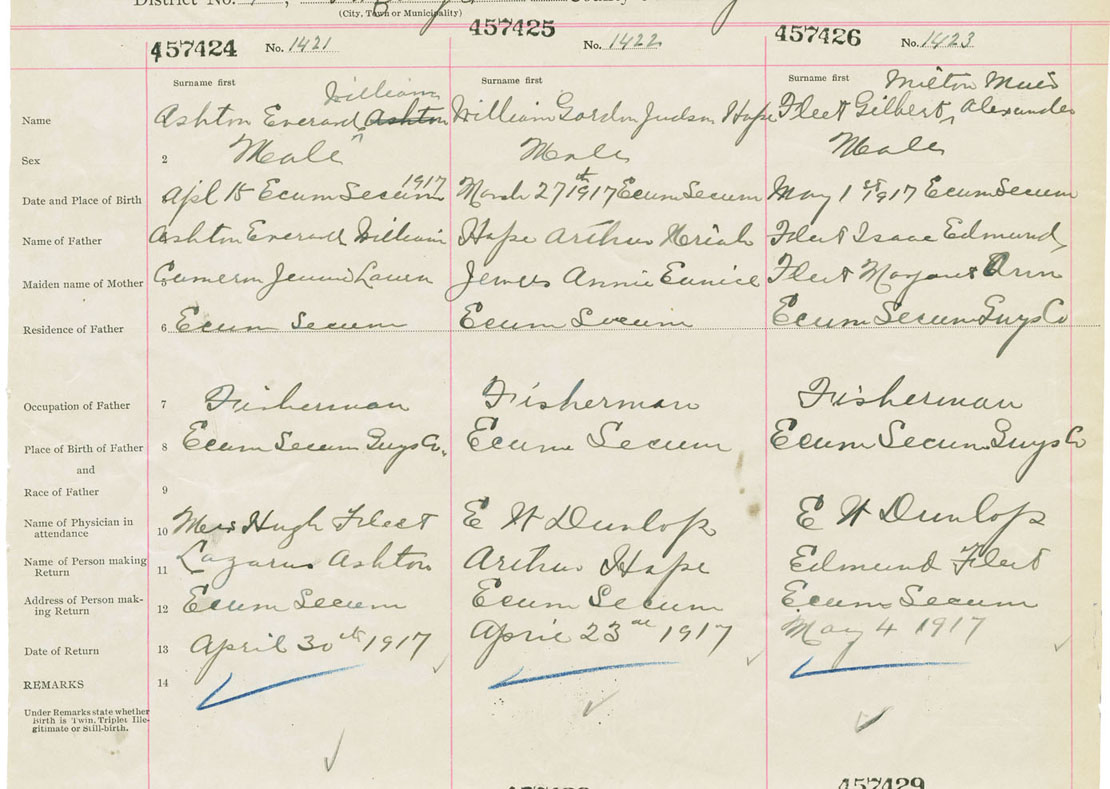 District No.
(City, Town or Municipality)
457424 No. 1421
457425 No. 1422
457426 No. 1423
Surname first Surname first Surname first
William Milton Muir
Name Ashton Everard Ashton William Gordon Judson Hape Fleet Gilbert Alexander
Sex 2 Male Male Male
Date and Place of Birth Apl 15 Ecum Secum 1917 March 27th 1917 Ecum Secum May 1st 1917 Ecum Secum
Name of Father Ashton Everard William Hape Arthur Fleet Isaac Edmund
Maiden name of Mother Cameron Jennie Laura Annie Eunice Fleet Margaret Ann
Residence of Father 6 Ecum Secum Ecum Secum Ecum Secum Guys Co
Occupation of Father 7 Fisherman Fisherman Fisherman
Place of Birth of Father 8 Ecum Secum Guys Co. Ecum Secum Ecum Secum Guys Co
and
Race of Father 9
Name of Physician in
attendance 10 Mrs Hugh Fleet E H Dunlop E H Dunlop
Name of Person making
Return 11 Lazarus Ashton Arthur Hape Edmund Fleet
Address of Person mak-
ing Return 12 Ecum Secum Ecum Secum Ecum Secum
Date of Return 13 April 30th 1917 April 23rd 1917 May 4 1917
REMARKS 14
Under Remarks state whether
Birth is Twin, Triplet Ille-
gitimate or Still-birth.
457429